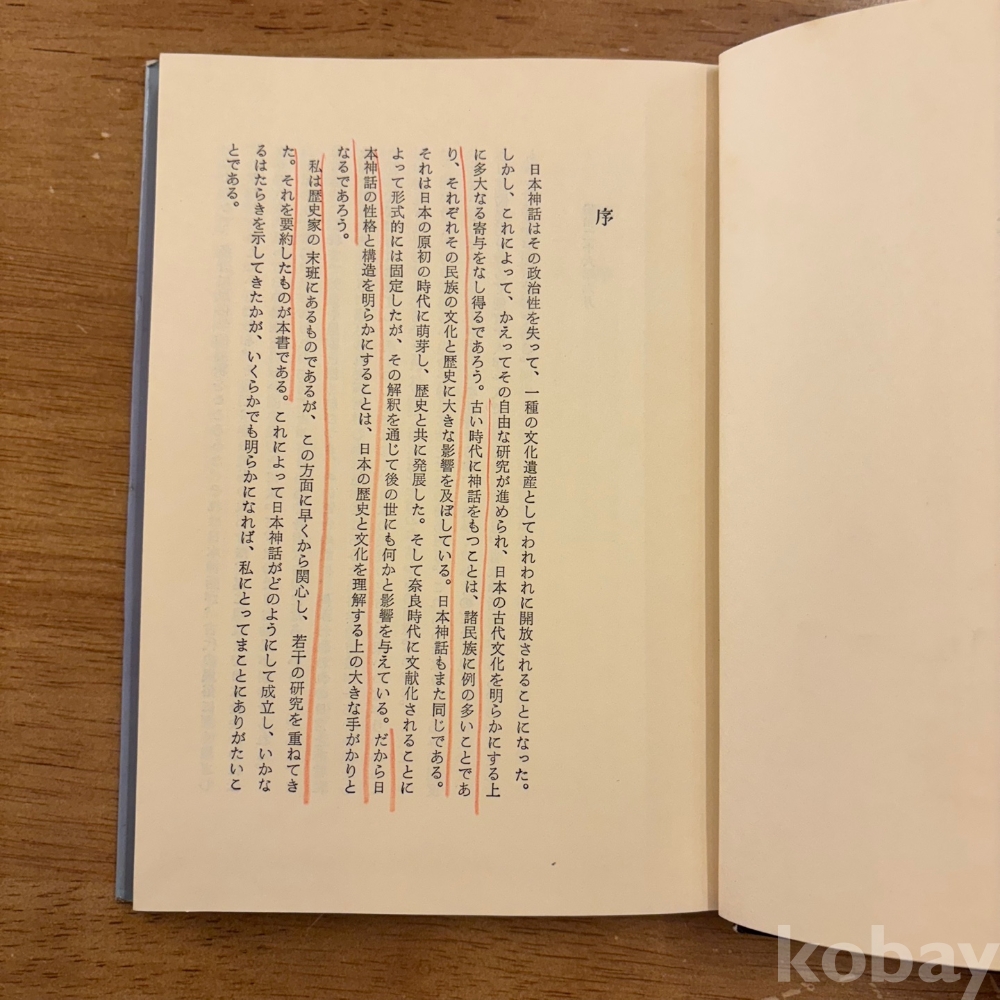 序
日本神話はその政治性を失って、一種の文化遺産としてわれわれに開放されることになった。
しかし、これによって、かえってその自由な研究が進められ、日本の古代文化を明らかにする上
に多大なる寄与をなし得るであろう。古い時代に神話をもつことは、諸民族に例の多いことであ
り、それぞれその民族の文化と歴史に大きな影響を及ぼしている。日本神話もまた同じである。
それは日本の原初の時代に萌芽し、歴史と共に発展した。そして奈良時代に文献化されることに
よって形式的には固定したが、その解釈を通じて後の世にも何かと影響を与えている。だから日
本神話の性格と構造を明らかにすることは、日本の歴史と文化を理解する上の大きな手がかりと
なるであろう。
私は歴史家の末班にあるものであるが、この方面に早くから関心し、若干の研究を重ねてき
た。それを要約したものが本書である。これによって日本神話がどのようにして成立し、いかな
るはたらきを示してきたかが、いくらかでも明らかになれば、私にとってまことにありがたいこ
とである。
kobay